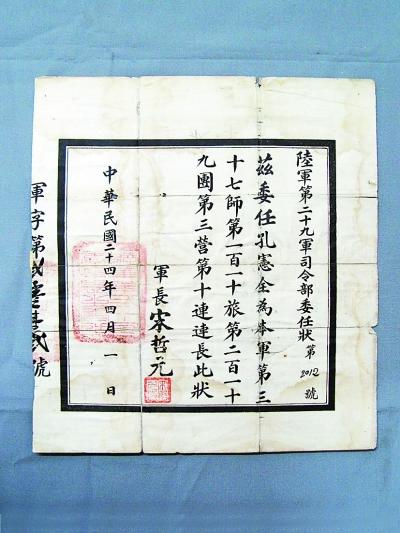 陸軍第二十九軍司令部委任狀 第2012號
茲委任孔憲全為本軍第三
十七師第一百一十旅第二百一十
九團第三營第十連連長此狀
軍長 宋哲元
中華民國二十四年四月一日
軍字第貳零壹貳號